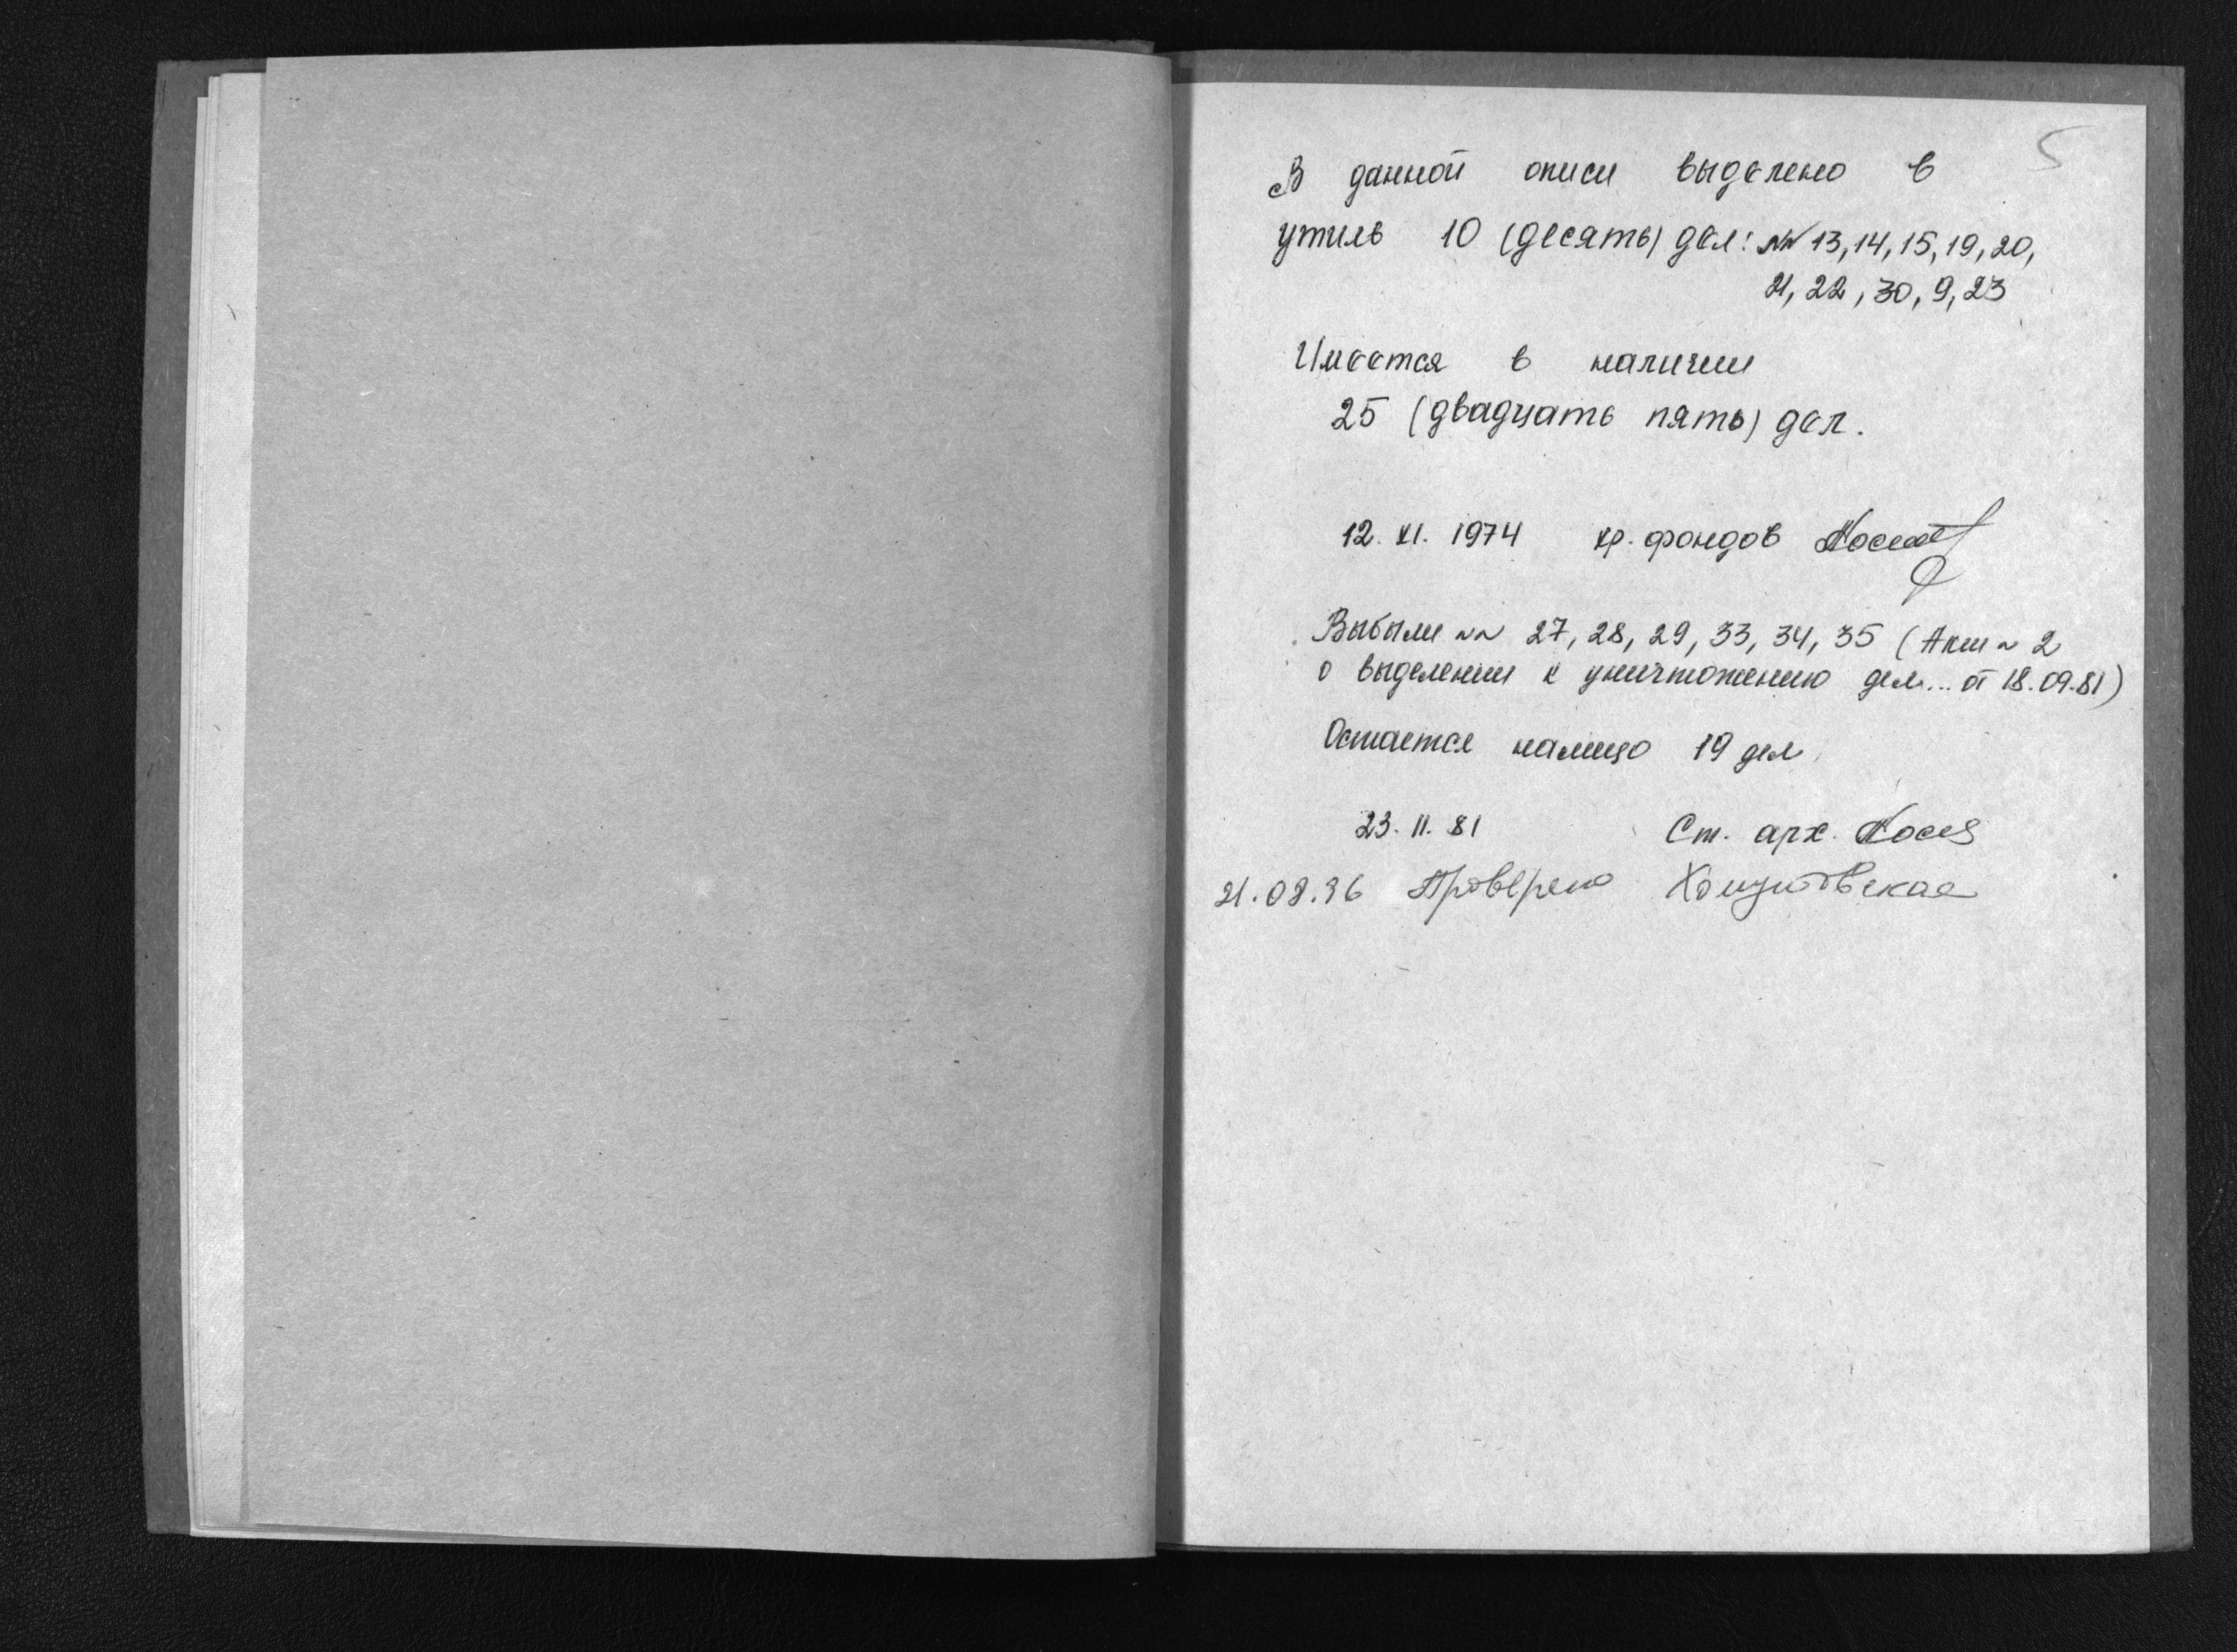 5
В данной описи выделено в
утиль 10 (десять) дел: №№ 13, 14, 15, 19, 20,
21, 22, 30, 9, 23
Имеется в наличии
25 (двадцать пять) дел.
12. XI. 1974 хр. фондов
Выбыли №№ 27, 28, 29, 33, 34, 35 (Акт № 2
о выделении к уничтожению дел... от 18.09.81)
Остается налицо 19 дел.
23. 11. 81 Ст. арх.
Проверено